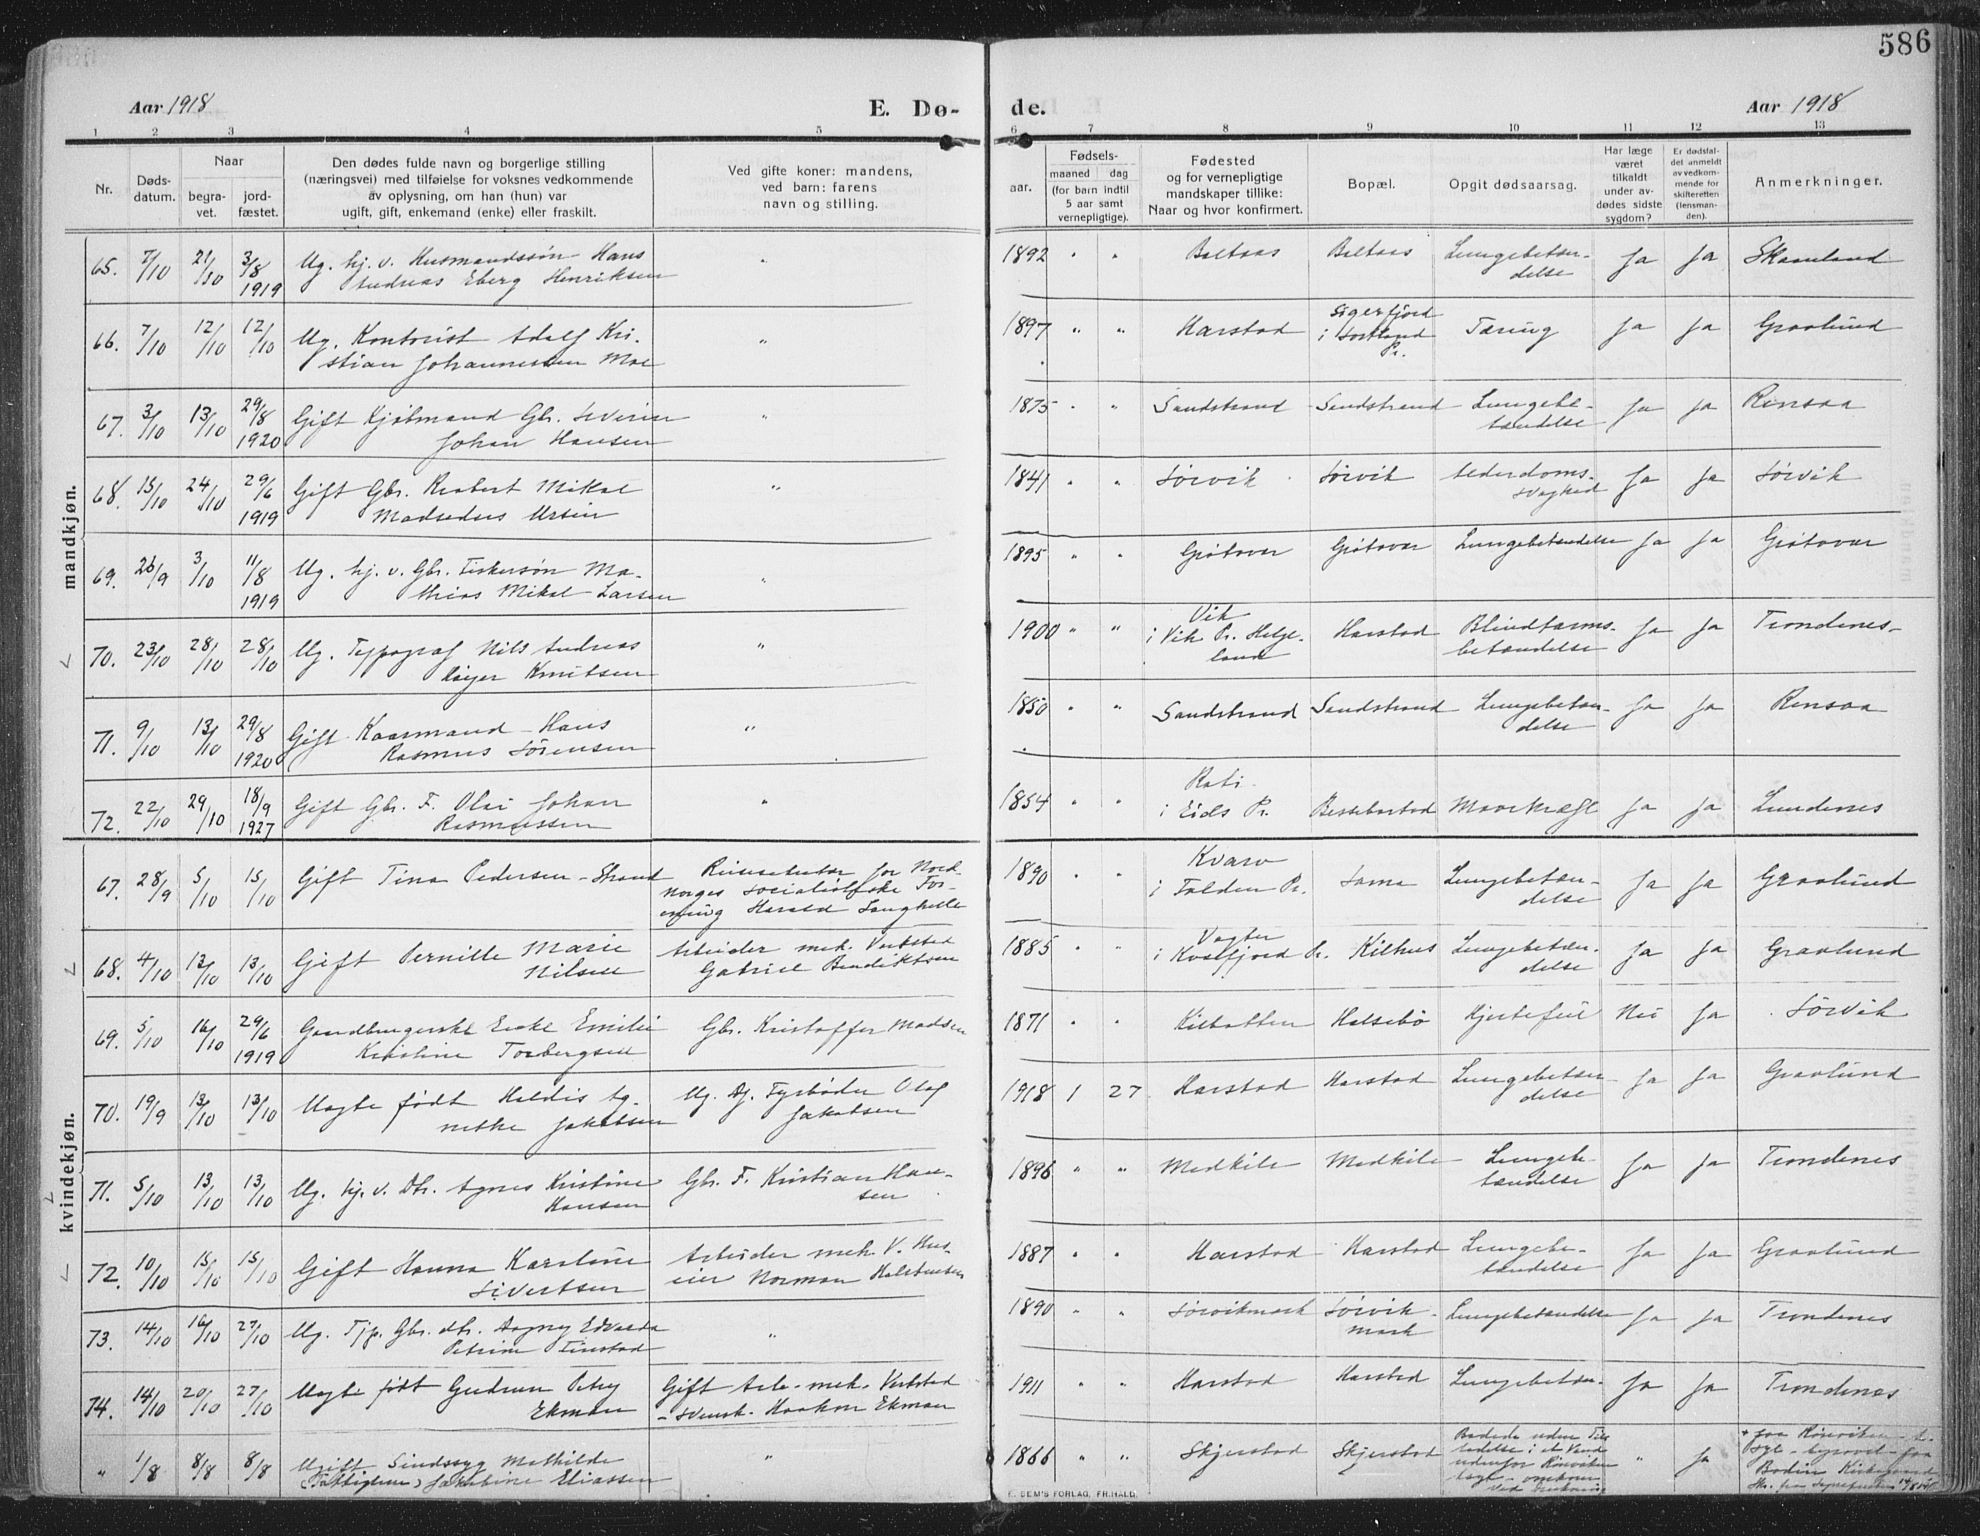 586
Aar 1918
E. Dø-
de.
Aar 1918
1 2 3 4 5 6 7 8 9 10 11 12 13
Nr.
Døds-
datum.
Naar
begra-
vet.
jord-
fæstet.
Den dødes fulde navn og borgerlige stilling
(næringsvei) med tilføielse for voksnes vedkommende
av oplysning, om han (hun) var
ugift, gift, enkemand (enke) eller fraskilt.
Ved gifte koner: mandens,
ved barn: farens
navn og stilling.
aar.
Fødsels-
maaned dag
(for barn indtil
5 aar samt
vernepligtige).
Fødested
og for vernepligtige
mandskaper tillike:
Naar og hvor konfirmert.
Bopæl.
Opgit dødsaarsag.
Har læge
været
tilkaldt
under av-
dødes sidste
sygdom?
Er dødsfal-
det anmeldt
av vedkom-
mende for
skifteretten
(lensman-
den).
Anmerkninger.
mandkjøn.
65. 7/10 21/10 3/8 1919 Ug. hj. v. Husmandssøn Hans
Andreas Eberg Henriksen
" 1892 " " Boltaas Boltaas Lungebetæn-
delse Ja Ja Skaanland
66. 7/10 12/10 12/10 Ug. Kontorist Adolf Kri-
stian Johannessen Moe
" 1897 " " Harstad Sigerfjord
i Sortland
Pr. Tæring Ja Ja Graalund
67. 3/10 13/10 29/8 1920 Gift Kjøbmand Gbr. Severin
Johan Hansen
" 1875 " " Sandstrand Sandstrand Lungebe-
tændelse Ja Ja Rensaa
68. 15/10 24/10 29/6 1919 Gift Gbr. Robert Mikal
Madseds Ursin
" 1841 " " Sørvik Sørvik Alderdoms-
svaghed Ja Ja Sørvik
69. 26/9 3/10 11/8 1919 Ug. hj. v. Gbr. Fiskersøn Ma-
thias Mikal Larsen
" 1895 " " Grøtavær Grøtavær Lungebetændelse Ja Ja Grøtavær
70. 23/10 28/10 28/10 Ug. Typograf Nils Andreas
Knutsen
" 1900 " " Vik
i Vik Pr. Helge-
land Harstad Blindtarms-
betændelse Ja Ja Trondenes
71. 9/10 13/10 29/8 1920 Gift Kaarmand Hans
Rasmus Sørensen
" 1850 " " Sandstrand Sandstrand Lungebetæn-
delse Ja Ja Rensaa
72. 22/10 29/10 18/9 1927 Gift Gbr. F. Olai Johan
Rasmussen
" 1854 " "
i Eids Pr. Bestebostad Mavekræft Ja Ja Lundenes
kvindekjøn.
67. 28/9 5/10 15/10 Gift Tina Pedersen-Strand
Reisesekretær for Nord-
norges socialistiske For-
ening Harald Langhelle
1890 " " Kvarv
i Folden Pr. Sama Lungebetæn-
delse Ja Ja Graalund
68. 4/10 13/10 13/10 Gift Pernille Marie
Nilsen
Arbeider mek. Verksted
Gabriel Bendiktsen
1885 " "
i Kvæfjord Pr. Kilhus Lungebetæn-
delse Ja Ja Graalund
69. 5/10 16/10 29/6 1919 Gaardbrugerske Enke Emilie
Kristine Torbergsen
Gbr. Kristoffer Madsen
1871 " " Kilbotten Halsebø Hjertefeil Nei Ja Sørvik
70. 19/9 13/10 13/10 Uegte født Haldis Ag-
nethe Jakobsen
Ug. Dj. Fyrbøder Olaf
Jakobsen
1918 1 27 Harstad Harstad Lungebetæn-
delse Ja Ja Graalund
71. 5/10 13/10 13/10 Ug. hj. v. Dtr. Agnes Kristine
Hansen
Gbr. F. Kristian Han-
sen
1896 " " Medkile Medkile Lungebe-
tændelse Ja Ja Trondenes
72. 10/10 15/10 15/10 Gift Hanna Karoline
Sivertsen
Arbeider mek. V. Hus-
eier Norman
1887 " " Harstad Harstad Lungebe-
tændelse Ja Ja Graalund
73. 14/10 16/10 27/10 Ug. Tjp. Gbr. dtr. Aagny Edvarda
Petrine Finstad
" 1890 " " Sørvikmark Sørvik-
mark Lungebetændelse Ja Ja Trondenes
74. 14/10 20/10 27/10 Uegte født Gudrun Petry
Ekman
Gift Arb. mek. Verksted
- svensk. Haakon Ekman
1911 " " Harstad Harstad Lungebetæn- Ja Ja Trondenes
" 1/8 8/8 8/8 Ugift Sindssyg Mathilde
(Fattiglem) Jakobine Eliassen
" 1866 Skjerstad Skjerstad Badede uden Til-
ladelse i et Vand
udenfor Rønvikens
asyl - omkom
ved " Ja + paa Rønvikens A-
syl - begravet paa
Bodin Kirkegaard
E. SEM'S FORLAG, FR.HALD.